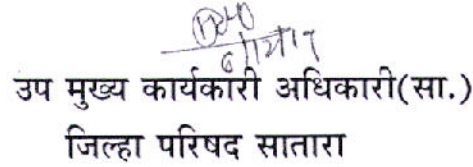 उप मुख्य कार्यकारी अधिकारी(सा.)
जिल्हा परिषद सातारा